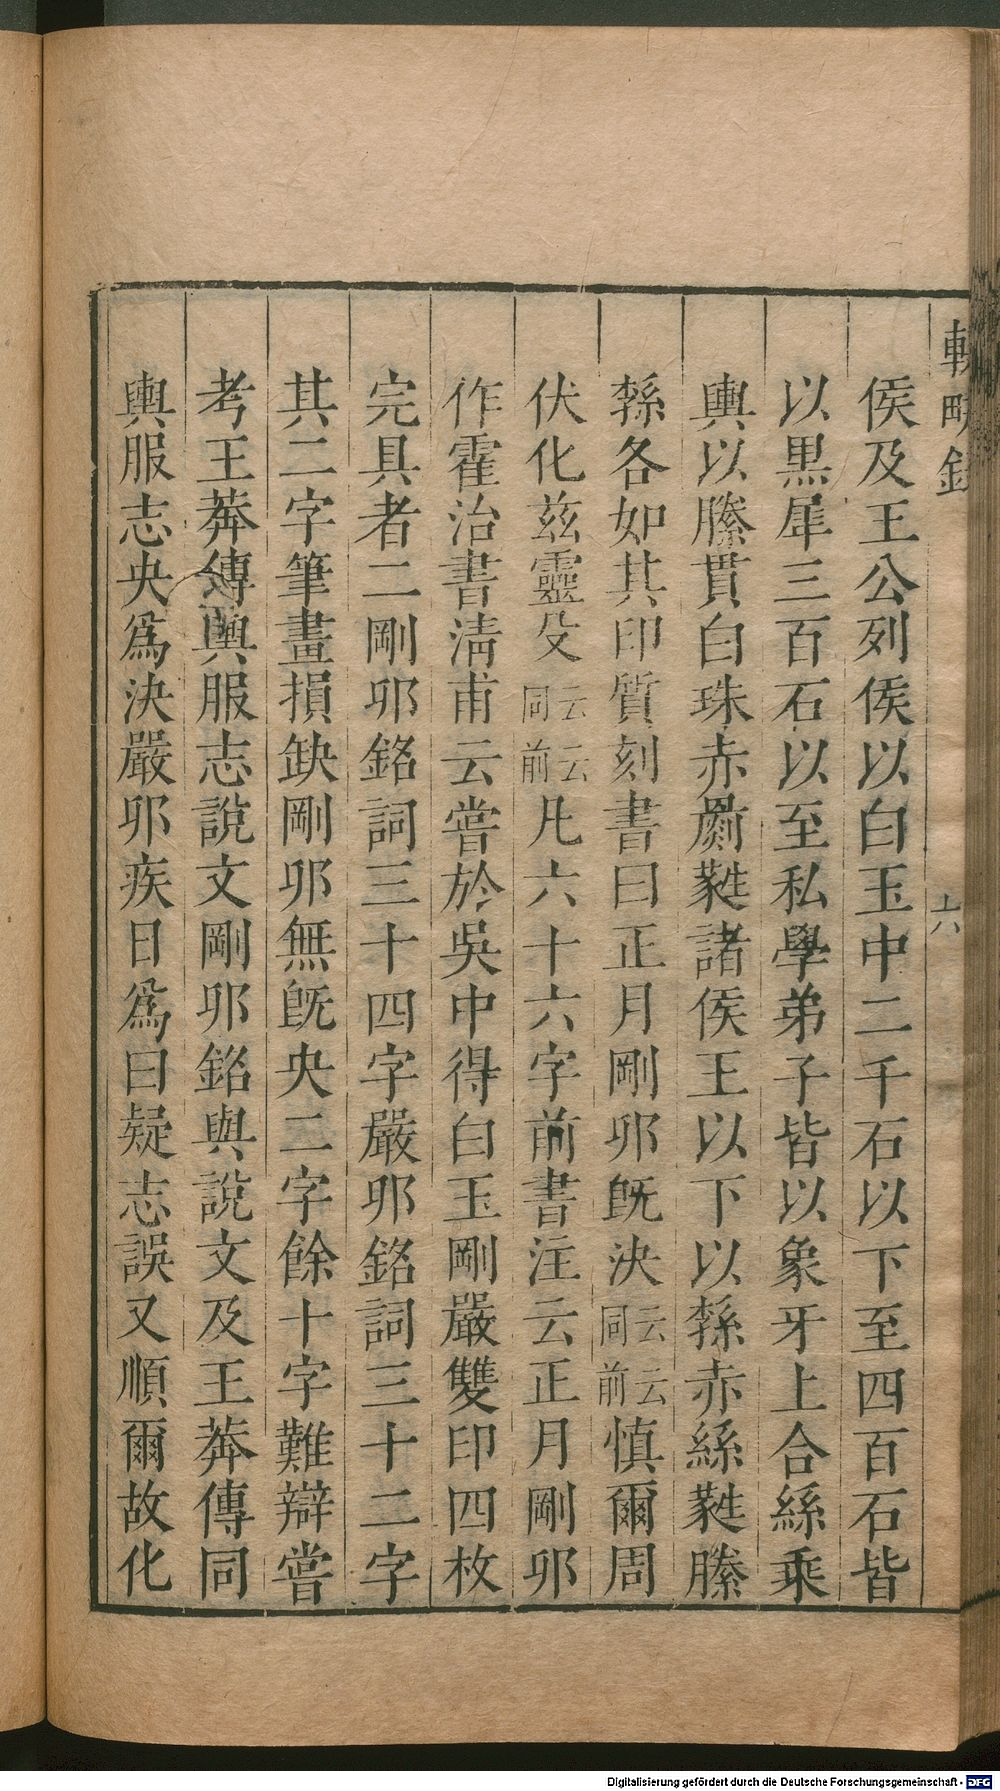 輟畊錄
六
侯及王公列侯以白玉中二千石以下至四百石皆
以黑犀三百石以至私學弟子皆以象牙上合絲乘
輿以縢貫白珠赤罽蕤諸侯王以下以綔赤絲蕤縢
綔各如其印質刻書曰正月剛卯旣決云云同前慎爾周
伏化茲靈殳云云同前凡六十六字前書注云正月剛卯
作霍治書淸甫云嘗於吳中得白玉剛嚴雙印四枚
完具者二剛卯銘詞三十四字嚴卯銘詞三十二字
其二字筆畫損缺剛卯無旣央二字餘十字難辯嘗
考王莽傳輿服志說文剛卯銘與說文及王莽傳同
輿服志央爲決嚴卯疾日爲曰疑志誤又順爾故化
Digitalisierung gefördert durch die Deutsche Forschungsgemeinschaft - DFG